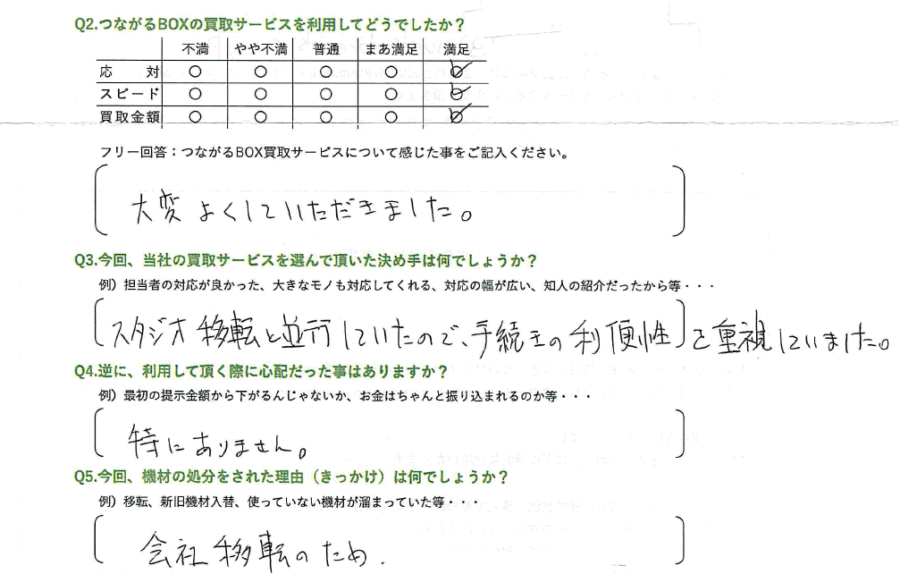 Q2.つながるBOXの買取サービスを利用してどうでしたか？
不満 やや不満 普通 まあ満足 満足
応 対 ○ ○ ○ ○ ○
スピード ○ ○ ○ ○ ○
買取金額 ○ ○ ○ ○ ○
フリー回答：つながるBOX買取サービスについて感じた事をご記入ください。
大変よくしていただきました。
Q3.今回、当社の買取サービスを選んで頂いた決め手は何でしょうか？
例）担当者の対応が良かった、大きなモノも対応してくれる、対応の幅が広い、知人の紹介だったから等・・・
スタジオ移転と並行していたので、手続きの利便性を重視していました。
Q4.逆に、利用して頂く際に心配だった事はありますか？
例）最初の提示金額から下がるんじゃないか、お金はちゃんと振り込まれるのか等・・・
特にありません。
Q5.今回、機材の処分をされた理由（きっかけ）は何でしょうか？
例）移転、新旧機材入替、使っていない機材が溜まっていた等・・・
会社移転のため.